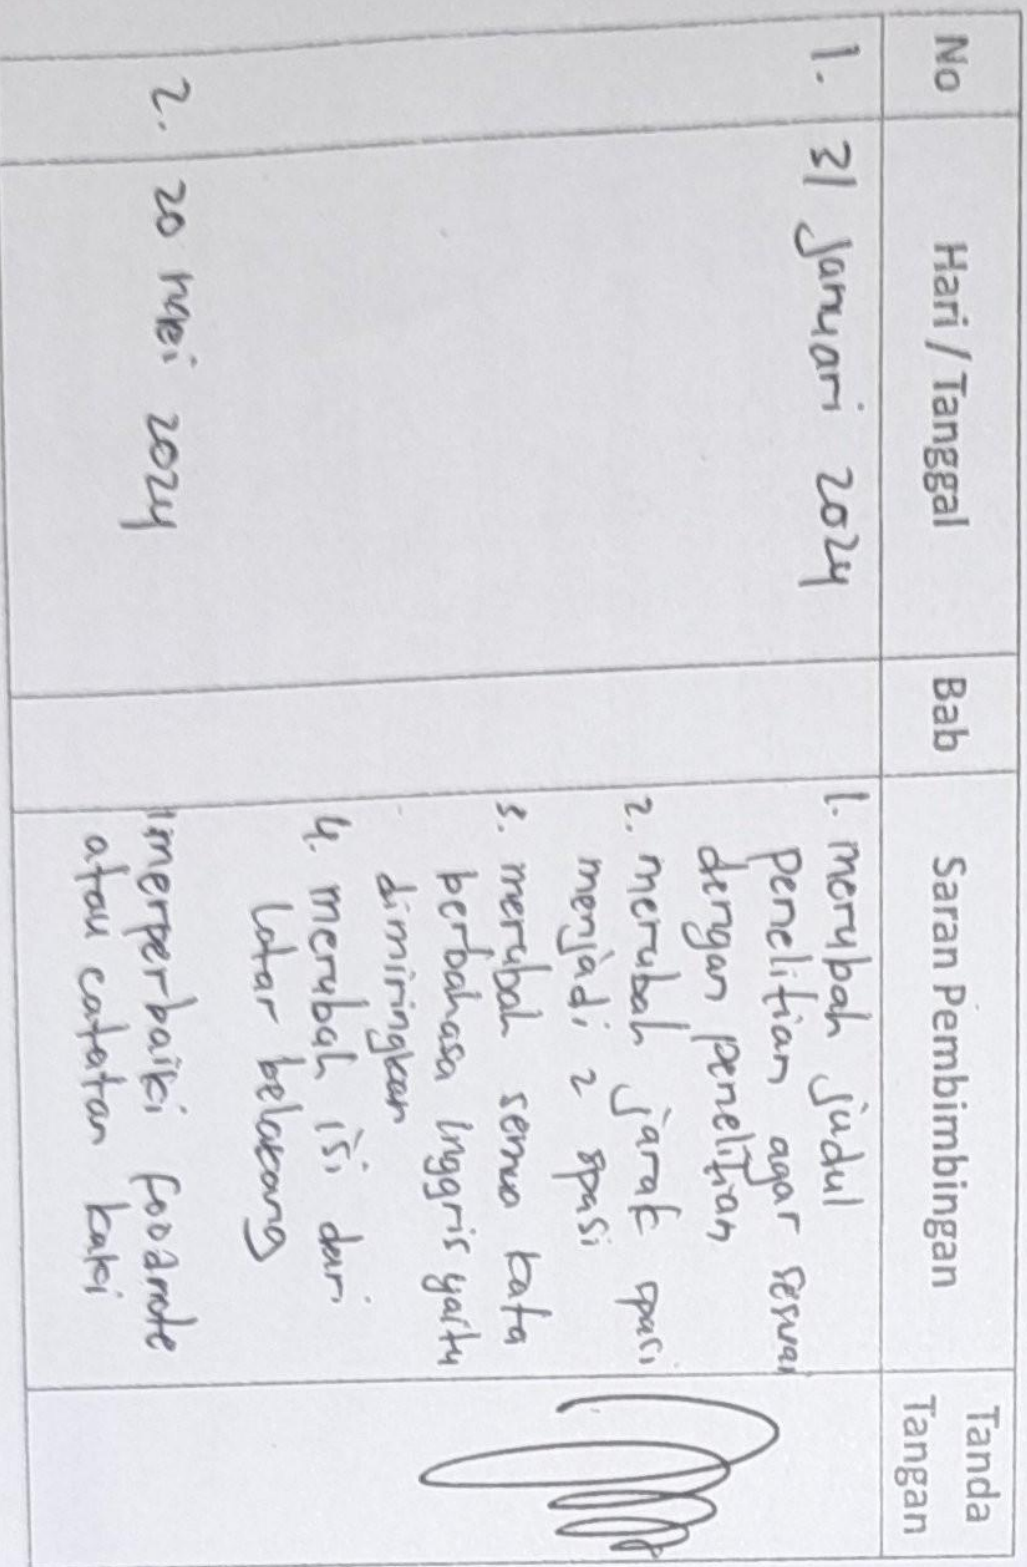 No Hari / Tanggal Bab Saran Pembimbingan Tanda Tangan
1. 31 Januari 2024 1. merubah judul
penelitian agar sesuai
dengan penelitian
2. merubah jarak spasi
menjadi 2 spasi
3. merubah semua kata
berbahasa Inggris yaitu
dimiringkan
4. merubah isi dari
latar belakang
2. 20 mei 2024 memperbaiki foodnote
atau catatan kaki